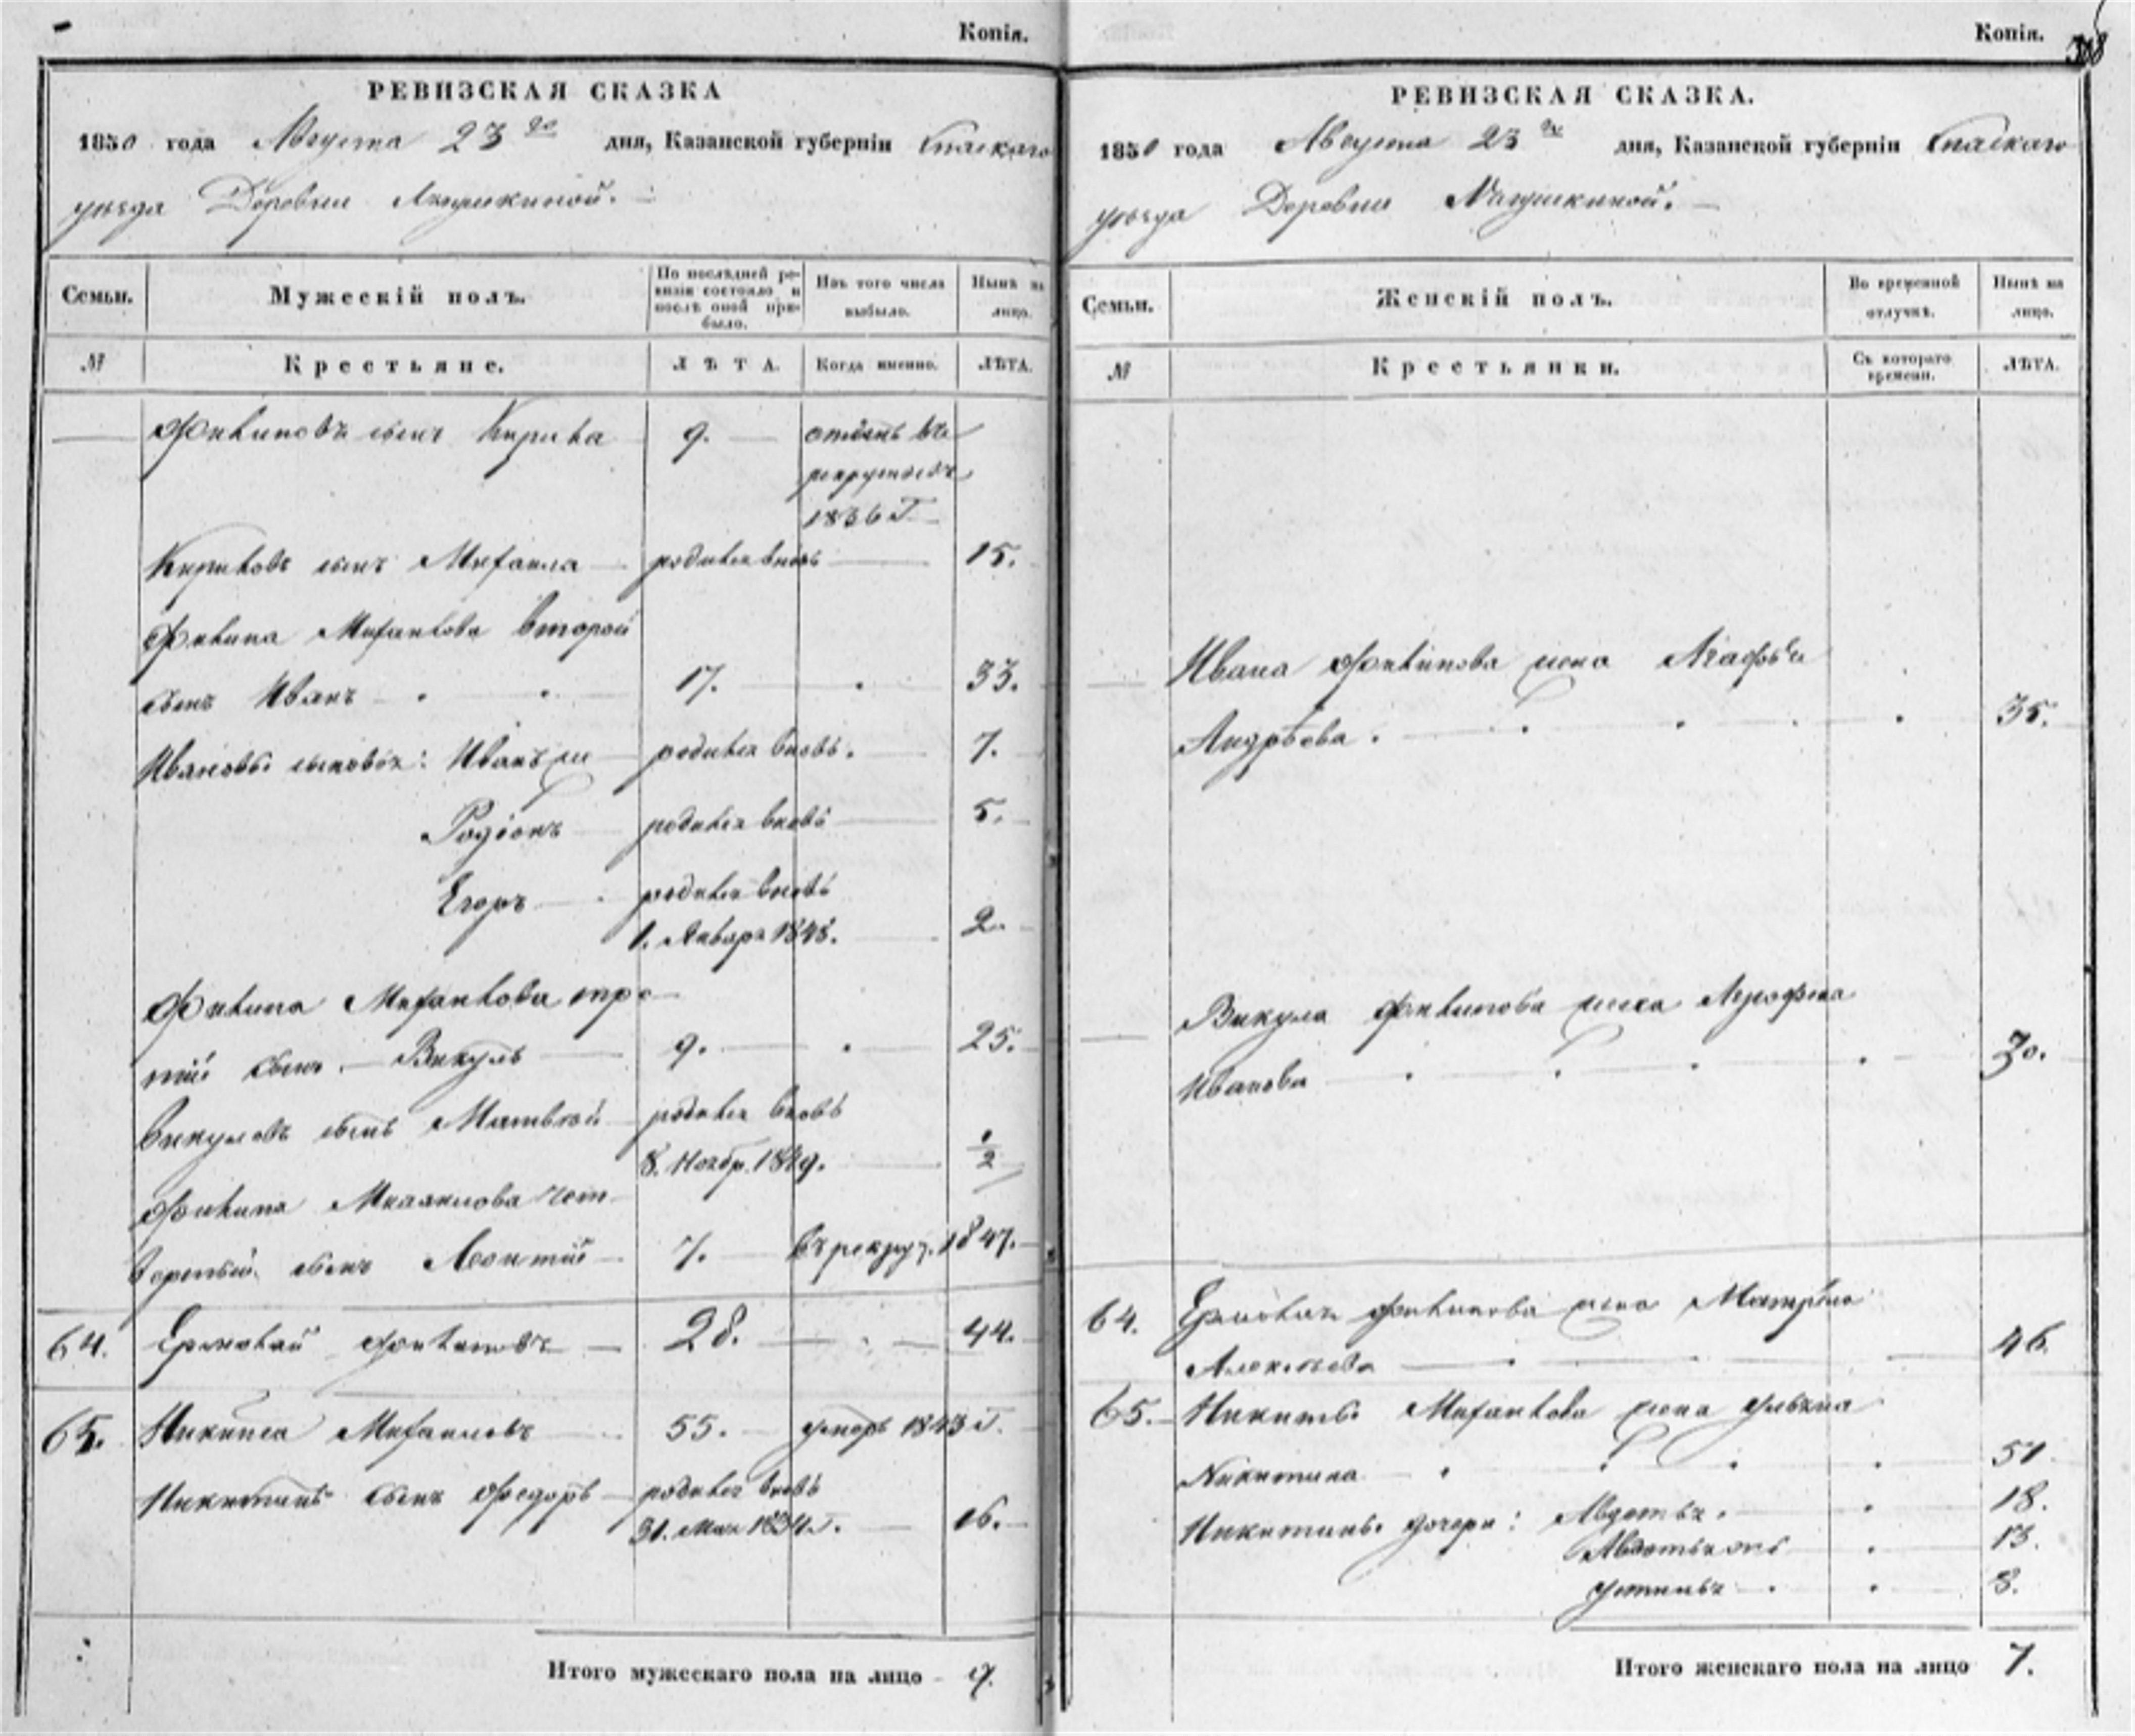 Копія.
РЕВИЗСКАЯ СКАЗКА
1850 года Августа 23го дня, Казанской губерніи Спаскаго
уѣзда Деревни
Семьи.
Мужескій полъ.
По послѣдней ревизіи состояло и послѣ оной прибыло.
Изъ того числа выбыло.
Нынѣ на лицо.
№
Крестьяне.
ЛѢТА.
Когда именно.
ЛѢТА.
Филиповъ сынъ Кирила 9. отданъ въ
рекруты въ
1836 Г
Кириловъ сынъ Михаила родился вновь 15.
Филипа Михаилова второй
сынъ Иванъ 17. 33.
Ивановы сыновья: Иванъ же родился вновь. 7.
Родіонъ родился вновь 5.
Егоръ родился вновь
1. Январ. 1848. 2.
Филипа Михаилова тре-
тій сынъ Викулъ 9. 25.
Викуловъ сынъ Матвѣй родился вновь
8. Ноябр. 1849. 1/2
Филипа Михаилова чет-
вертый сынъ Леонтій 7. въ рекрут. 1847.
64. Ермолай Филиповъ 28. 44.
65. Никита Михаиловъ 55. умеръ 1843 Г.
Никитинъ сынъ Федоръ родился вновь
31. Мая 1834 Г. 16.
Итого мужескаго пола на лицо 9.
Копія.
РЕВИЗСКАЯ СКАЗКА.
1850 года Августа 23 дня, Казанской губерніи Спаскаго
уѣзда Деревни
Семьи.
Женскій полъ.
Во временной отлучкѣ.
Нынѣ на лицо.
№
Крестьянки.
Съ котораго времени.
ЛѢТА.
Ивана Филипова жена Агафья
Андрѣева. 35.
Викула Филипова жена Агрофена
Иванова 30.
64. Ермолая Филипова жена Матрёна
Алексѣева 46.
65. Никиты Михаилова жена
Никитина 51
Никитины дочери: Авдотья. 18.
Авдотья же 13.
Устинья 8.
Итого женскаго пола на лицо 7.